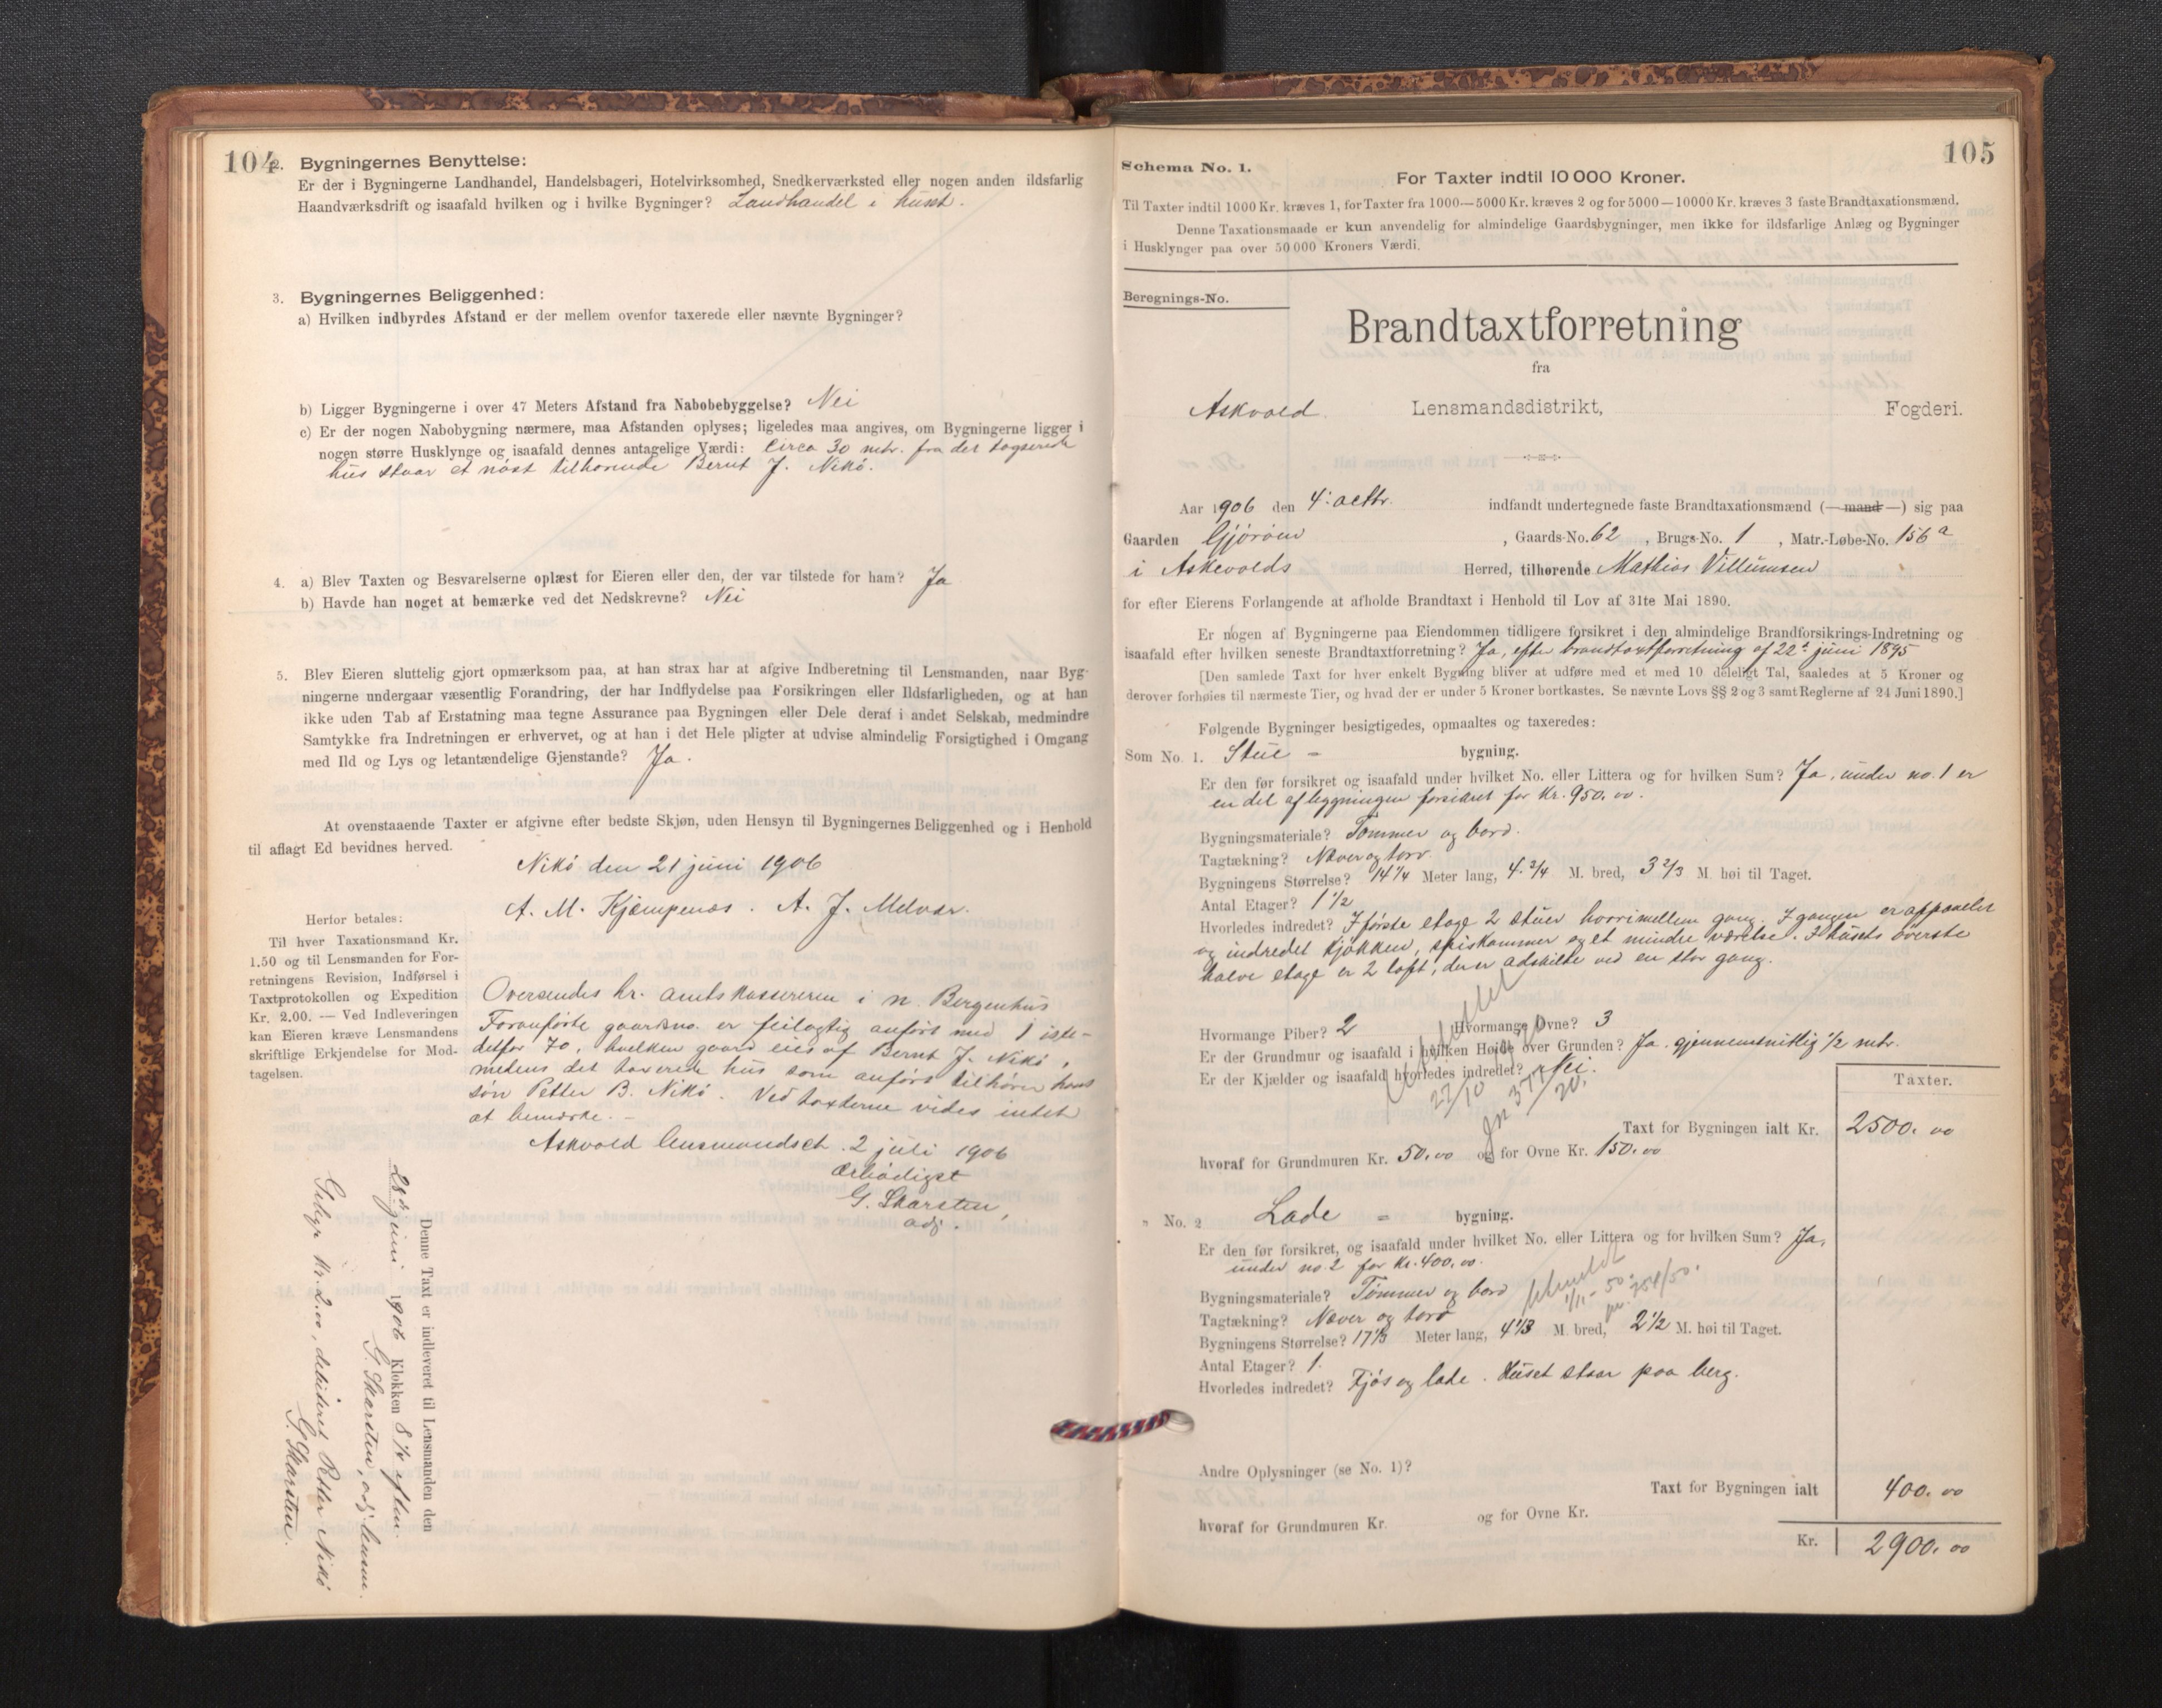 104
2. Bygningernes Benyttelse:
Er der i Bygningerne Landhandel, Handelsbageri, Hotelvirksomhed, Snedkerværksted eller nogen anden ildsfarlig
Haandværksdrift og isaafald hvilken og i hvilke Bygninger? Landhandel i huset.
3. Bygningernes Beliggenhed:
a) Hvilken indbyrdes Afstand er der mellem ovenfor taxerede eller nævnte Bygninger?
b) Ligger Bygningerne i over 47 Meters Afstand fra Nabobebyggelse? Nei
c) Er der nogen Nabobygning nærmere, maa Afstanden oplyses; ligeledes maa angives, om Bygningerne ligger i
nogen større Husklynge og isaafald dennes antagelige Værdi: Circa 30 mtr. fra det taxerede
hus staar et nøst tilhørende Bernt J. Nikø.
4. a) Blev Taxten og Besvarelserne oplæst for Eieren eller den, der var tilstede for ham? Ja
b) Havde han noget at bemærke ved det Nedskrevne? Nei
5. Blev Eieren sluttelig gjort opmærksom paa, at han strax har at afgive Indberetning til Lensmanden, naar Byg-
ningerne undergaar væsentlig Forandring, der har Indflydelse paa Forsikringen eller Ildsfarligheden, og at han
ikke uden Tab af Erstatning maa tegne Assurance paa Bygningen eller Dele deraf i andet Selskab, medmindre
Samtykke fra Indretningen er erhvervet, og at han i det Hele pligter at udvise almindelig Forsigtighed i Omgang
med Ild og Lys og letantændelige Gjenstande? Ja.
At ovenstaaende Taxter er afgivne efter bedste Skjøn, uden Hensyn til Bygningernes Beliggenhed og i Henhold
til aflagt Ed bevidnes herved.
Nikø den 21 juni 1906
A. M. Kjempenes. A. J. Melvær.
Herfor betales:
Til hver Taxationsmand Kr.
1.50 og til Lensmanden for For-
retningens Revision, Indførsel i
Taxtprotokollen og Expedition
Kr. 2.00. — Ved Indleveringen
kan Eieren kræve Lensmandens
skriftlige Erkjendelse for Mod-
tagelsen.
Oversendes hr. amtskassereren i n. Bergenhus
Foranførte gaardsno. er feilagtig anført med 1 iste-
detfor 70, hvilken gaard eies af Bernt J. Nikø,
medens det taxerede hus som anført tilhører hans
søn Petter B. Nikø. Ved taxterne vides intet
at bemærke. -
Askvold lensmandset. 2 juli 1906
Ærbødigst
G. Skarsten,
adj.
Denne Taxt er indleveret til Lensmanden den
28de juni 1906 Klokken 8 1/2 efterm.
G. Skarsten, adj. lensm.
Gebyr kr. 2.00, debiteret Petter Nikø
G. Skarsten.
105
Schema No. 1.
For Taxter indtil 10 000 Kroner.
Til Taxter indtil 1000 Kr. kræves 1, for Taxter fra 1000—5000 Kr. kræves 2 og for 5000—10000 Kr. kræves 3 faste Brandtaxationsmænd.
Denne Taxationsmaade er kun anvendelig for almindelige Gaardsbygninger, men ikke for ildsfarlige Anlæg og Bygninger
i Husklynger paa over 50 000 Kroners Værdi.
Beregnings-No.
Brandtaxtforretning
fra
Askvold Lensmandsdistrikt, Fogderi.
Aar 1906 den 4: octbr. indfandt undertegnede faste Brandtaxationsmænd (—mand—) sig paa
Gaarden Gjørøen, Gaards-No. 62, Brugs-No. 1, Matr.-Løbe-No. 156 a
i Askevolds Herred, tilhørende Mathias Villumsen
for efter Eierens Forlangende at afholde Brandtaxt i Henhold til Lov af 31te Mai 1890.
Er nogen af Bygningerne paa Eiendommen tidligere forsikret i den almindelige Brandforsikrings-Indretning og
isaafald efter hvilken seneste Brandtaxtforretning? Ja, efter brandtaxtforretning af 22: juni 1895
[Den samlede Taxt for hver enkelt Bygning bliver at udføre med et med 10 deleligt Tal, saaledes at 5 Kroner og
derover forhøies til nærmeste Tier, og hvad der er under 5 Kroner bortkastes. Se nævnte Lovs §§ 2 og 3 samt Reglerne af 24 Juni 1890.]
Følgende Bygninger besigtigedes, opmaaltes og taxeredes:
Som No. 1. Stue = bygning.
Er den før forsikret og isaafald under hvilket No. eller Littera og for hvilken Sum? Ja, under no. 1 er
en del af bygningen forsikret for Kr. 950.00.
Bygningsmateriale? Tømmer og bord.
Tagtækning? Næver og torv.
Bygningens Størrelse? 14 1/4 Meter lang, 4. 3/4 M. bred, 3 2/3 M. høi til Taget.
Antal Etager? 1 1/2
Hvorledes indredet? I første etage 2 stuer hvorimellem gang. I gangen er afpanelet
og indredet kjøkken, spiskammer og et mindre værelse. I husets øverste
halve etage er 2 loft, der er adskilte ved en stor gang.
Hvormange Piber? 2 Hvormange Ovne? 3
Er der Grundmur og isaafald i hvilken Høide over Grunden? Ja. gjennemsnitlig 1/2 mtr.
Er der Kjælder og isaafald hvorledes indredet? Nei.
22/10
Taxter.
Taxt for Bygningen ialt Kr. 2500.00
hvoraf for Grundmuren Kr. 50.00 og for Ovne Kr. 150.00
" No. 2 Lade = bygning.
Er den før forsikret, og isaafald under hvilket No. eller Littera og for hvilken Sum? Ja,
under no. 2 for Kr. 400.00.
Bygningsmateriale? Tømmer og bord
Tagtækning? Næver og torv
Bygningens Størrelse? 17 1/3 Meter lang, 4 1/3 M. bred, 2 1/2 M. høi til Taget.
Antal Etager? 1.
Hvorledes indredet? Fjøs og lade. Huset staar paa berg.
Andre Oplysninger (se No. 1)?
Taxt for Bygningen ialt 400.00
hvoraf for Grundmuren Kr. og for Ovne Kr.
Kr. 2900.00